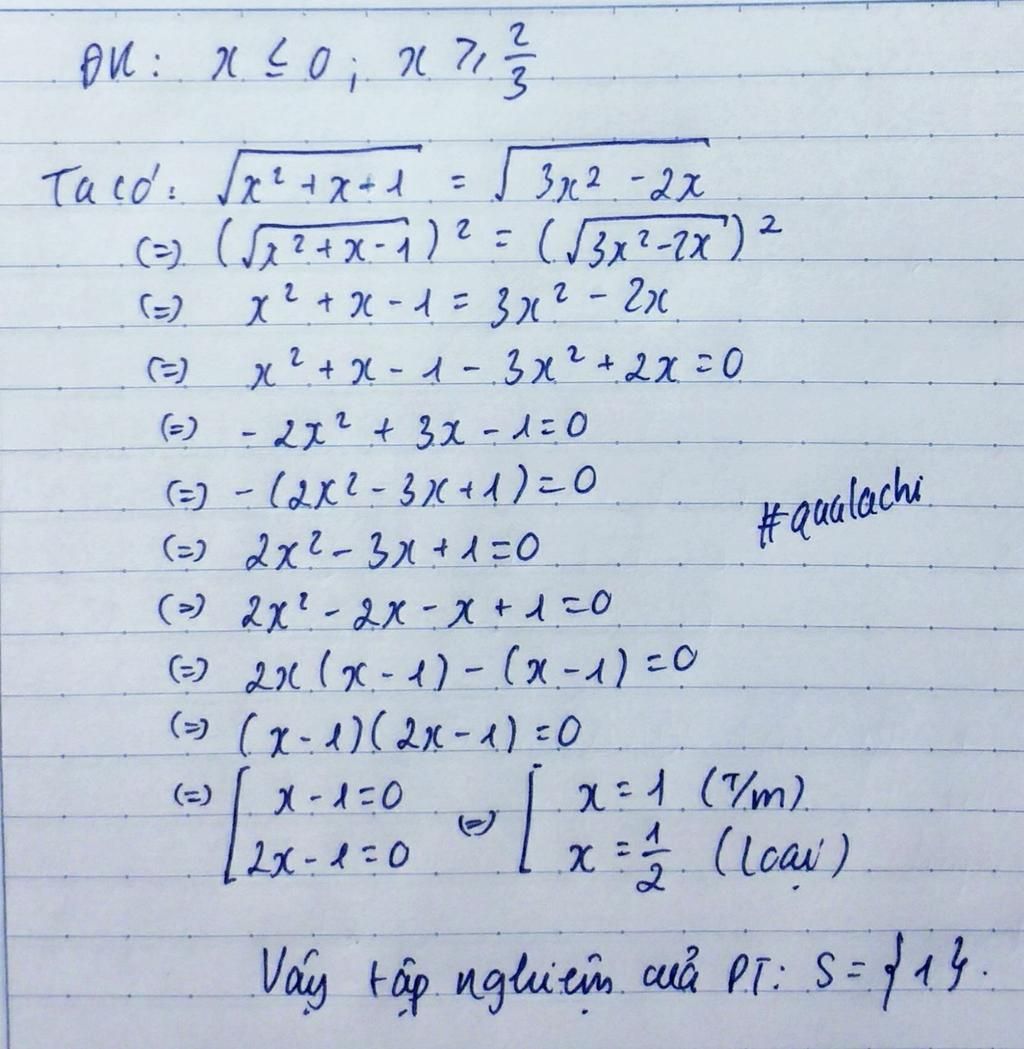 ĐK: x ≤ 0; x ≥ 2/3
Ta có: √(x² + x + 1) = √(3x² - 2x)
(=) (√(x² + x - 1))² = (√(3x² - 2x))²
(=) x² + x - 1 = 3x² - 2x
(=) x² + x - 1 - 3x² + 2x = 0
(=) - 2x² + 3x - 1 = 0
(=) - (2x² - 3x + 1) = 0
#qualachi
(=) 2x² - 3x + 1 = 0
(=) 2x² - 2x - x + 1 = 0
(=) 2x(x - 1) - (x - 1) = 0
(=) (x - 1)(2x - 1) = 0
(=) [ x - 1 = 0 (=) [ x = 1 (T/m)
2x - 1 = 0 x = 1/2 (loại)
Vậy tập nghiệm của PT: S = {1}.